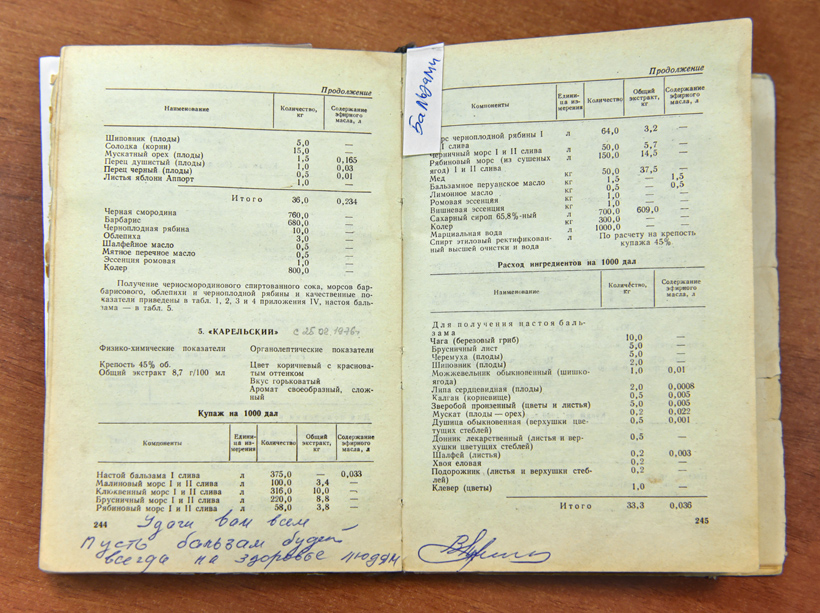 Продолжение
Наименование Количество, кг Содержание эфирного масла, л
Шиповник (плоды) 5,0 —
Солодка (корни) 15,0 —
Мускатный орех (плод) 1,5 0,165
Перец душистый (плоды) 1,0 0,03
Перец черный (плоды) 0,5 0,01
Листья яблони Аппорт 1,0 —
Итого 36,0 0,234
Черная смородина 760,0 —
Барбарис 680,0 —
Черноплодная рябина 10,0 —
Облепиха 3,0 —
Шалфейное масло 0,5 —
Мятное перечное масло 0,5 —
Эссенция ромовая 1,0 —
Колер 800,0 —
Получение черносмородинового спиртованного сока, морсов бар-
барисового, облепихи и черноплодной рябины и качественные по-
казатели приведены в табл. 1, 2, 3 и 4 приложения IV, настоя баль-
зама — в табл. 5.
5. «КАРЕЛЬСКИЙ» с 25.02.1976г
Физико-химические показатели Органолептические показатели
Крепость 45% об. Цвет коричневый с краснова-
Общий экстракт 8,7 г/100 мл тым оттенком
Вкус горьковатый
Аромат своеобразный, слож-
ный
Купаж на 1000 дал
Компоненты Едини-ца из-мерения Количество Общий экстракт, кг Содержание эфирного масла, л
Настой бальзама I слива л 375,0 — 0,033
Малиновый морс I и II слива л 100,0 3,4 —
Клюквенный морс I и II слива л 316,0 10,0 —
Брусничный морс I и II слива л 220,0 8,8 —
Рябиновый морс I и II слива л 58,0 3,8 —
244
Удачи вам всем
Пусть бальзам будет
всегда на здоровье людям
Бальзами
Продолжение
Компоненты Едини-ца из-мерения Количество Общий экстракт, кг Содержание эфирного масла, л
черноплодной рябины I
слива л 64,0 3,2 —
Черничный морс I и II слива л 50,0 5,7 —
Рябиновый морс (из сушеных л 150,0 14,5 —
ягод) I и II слива
Мед кг 50,0 37,5 —
Бальзамное перуанское масло кг 1,5 — 1,5
Лимонное масло кг 0,5 — 0,5
Ромовая эссенция кг 1,0 —
Вишневая эссенция кг 1,0 —
Сахарный сироп 65,8%-ный л 700,0 609,0 —
Колер кг 300,0 — —
Марциальная вода л 1000,0 — —
Спирт этиловый ректификован- л По расчету на крепость
ный высшей очистки и вода купажа 45%
Расход ингредиентов на 1000 дал
Наименование Количество, кг Содержание эфирного масла, л
Для получения настоя баль-
зама
Чага (березовый гриб) 10,0 —
Брусничный лист 5,0 —
Черемуха (плоды) 5,0 —
Шиповник (плоды) 2,0 —
Можжевельник обыкновенный (шишко- 1,0 0,01
ягода)
Липа сердцевидная (плоды) 2,0 0,0008
Калган (корневище) 0,5 0,005
Зверобой пронзенный (цветы и листья) 5,0 0,005
Мускат (плоды — орех) 0,2 0,022
Душица обыкновенная (верхушки цве- 0,5 0,001
тущих стеблей)
Донник лекарственный (листья и вер- 0,5 —
хушки цветущих стеблей)
Шалфей (листья) 0,2 0,003
Хвоя еловая 0,2 —
Подорожник (листья и верхушки стеб- 0,2 —
лей)
Клевер (цветы) 1,0 —
Итого 33,3 0,036
245